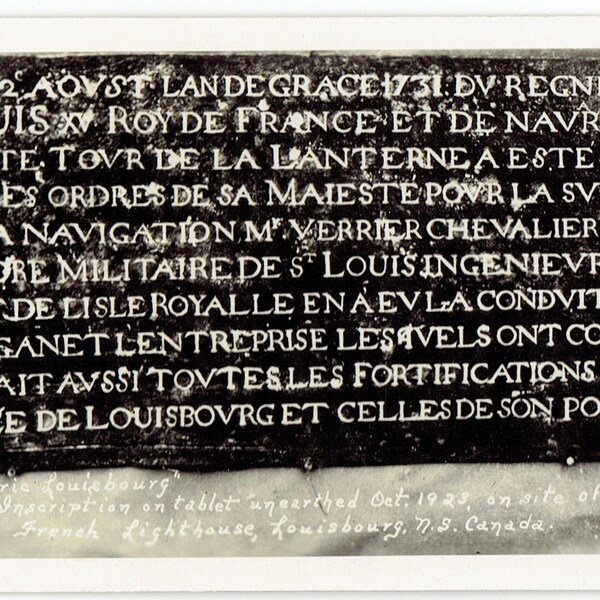 2ᵉ AOVST LAN DE GRACE 1731. DV REGNE
UIS XV ROY DE FRANCE ET DE NAVR
TE TOVR DE LA LANTERNE A ESTE
ES ORDRES DE SA MAIESTE POVR LA SV
A NAVIGATION, Mʳ. VERRIER CHEVALIER
DRE MILITAIRE DE Sᵀ LOUIS, INGENIEVR
DE LISLE ROYALLE EN A EV LA CONDVIT
GANET LENTREPRISE LESQVELS ONT CO
AIT AVSSI TOVTES LES FORTIFICATIONS
E DE LOUISBOVRG ET CELLES DE SON PO
ric Louisbourg"
Inscription on tablet unearthed Oct. 1923, on site of
French Lighthouse, Louisbourg, N.S. Canada.